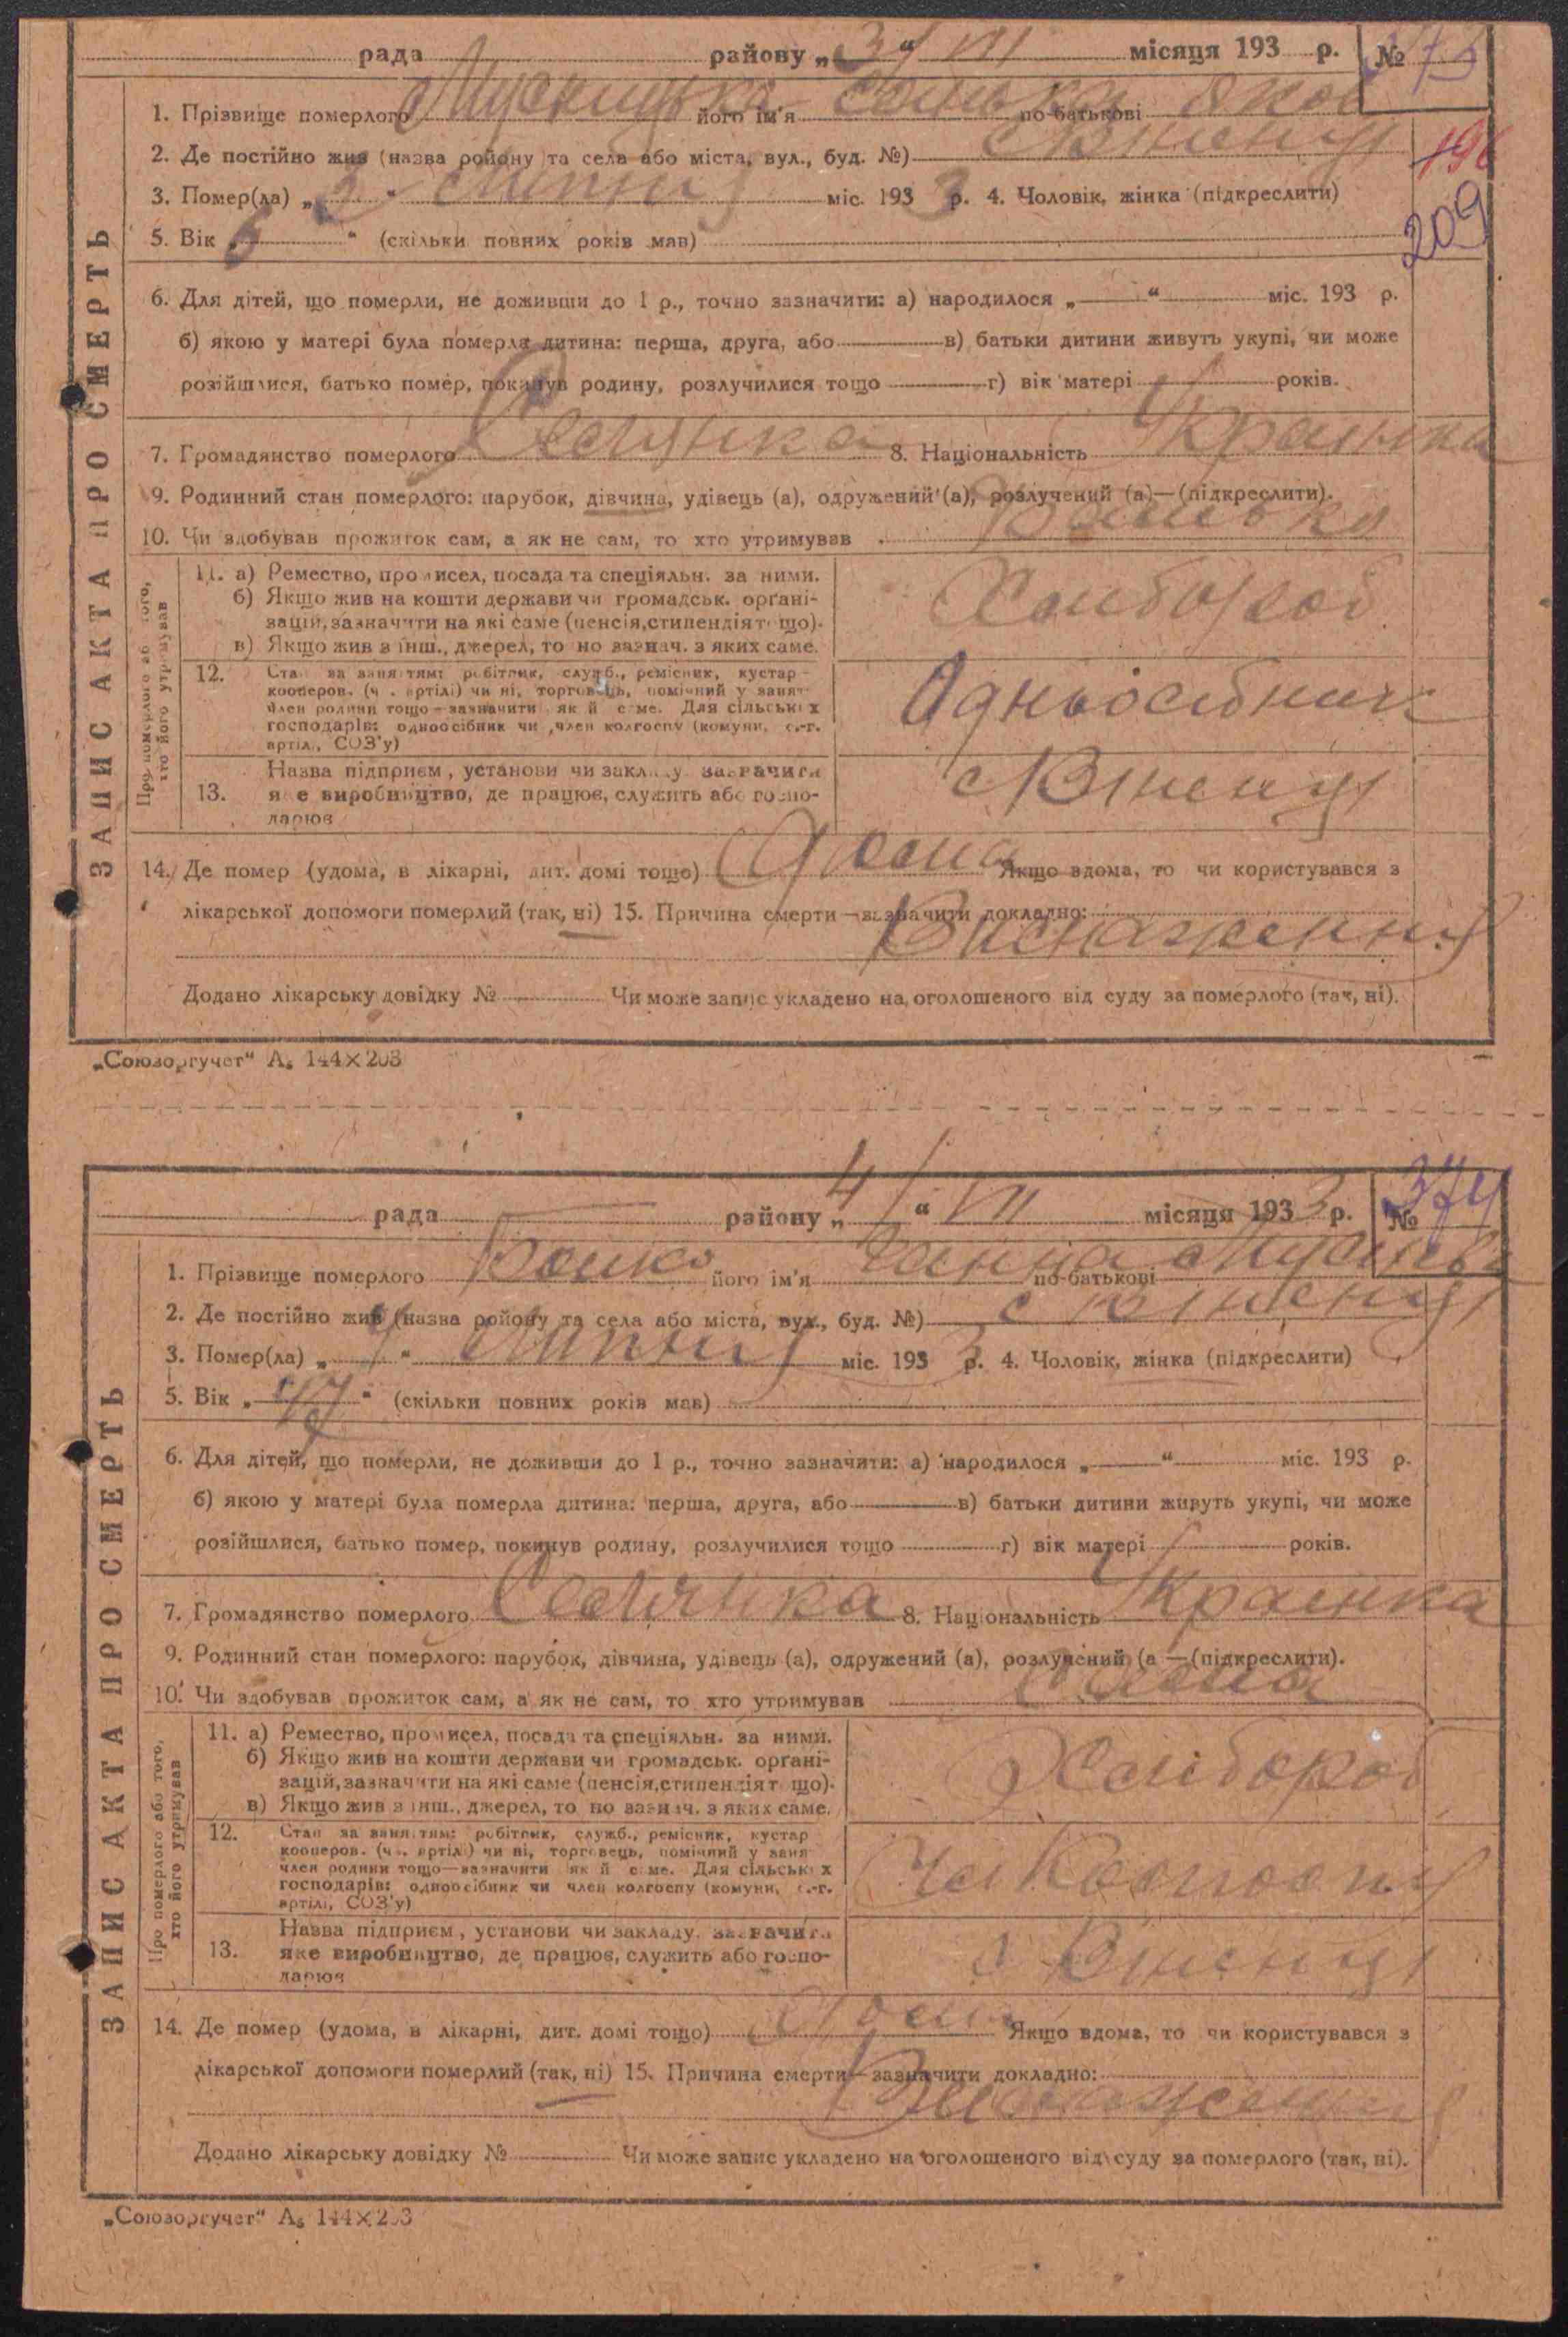 рада районУ „3/“ VII місяця 193 р. № 373
1. Прізвище померлого його ім'я по-батькові Яков
196
2. Де постійно жив (назва ройону та села або міста, вул., буд. №) с
3. Помер(ла) „3“ липня міс. 193 3 р. 4. Чоловік, жінка (підкреслити)
209
5. Вік „6“ (скільки повних років мав)
6. Для дітей, що померли, не доживши до 1 р., точно зазначити: а) народилося „ “ міс. 193 р.
б) якою у матері була померла дитина: перша, друга, або в) батьки дитини живуть укупі, чи може
розійшлися, батько помер, покинув родину, розлучилися тощо г) вік матері років.
7. Громадянство померлого Селянка 8. Національність Українка
9. Родинний стан померлого: парубок, дівчина, удівець (а), одружений (а), розлучений (а)—(підкреслити).
10. Чи здобував прожиток сам, а як не сам, то хто утримував Батько
Про померлого або того, хто його утримував
11. а) Ремество, промисел, посада та спеціяльн. за ними.
б) Якщо жив на кошти держави чи громадськ. органі-
зацій, зазначити на які саме (пенсія, стипендія тощо).
в) Якщо жив з інш., джерел, то но вазнач. з яких саме.
Хлібороб
12. Стан за заняттям: робітник, служб., ремісник, кустар
кооперов. (ч. артілі) чи ні, торговець, помічний у занят
член родини тощо—зазначити який саме. Для сільських
господарів: одноосібник чи член колгоспу (комуни, с.-г.
артілі, СОЗ'у)
Одньосібник
13. Назва підприєм, установи чи закладу. зазначити
яке виробництво, де працює, служить або госпо-
дарює
с
14. Де помер (удома, в лікарні, дит. домі тощо) Дома Якщо вдома, то чи користувався з
лікарської допомоги померлий (так, ні) 15. Причина смерти—зазначити докладно:
Виснаження
Додано лікарську довідку № Чи може запис укладено на оголошеного від суду за померлого (так, ні).
ЗАПИС АКТА ПРО СМЕРТЬ
„Союзоргучет“ А₅ 144×203
рада районУ „4/“ VII місяця 193 3 р. № 374
1. Прізвище померлого Бойко його ім'я Ганна по-батькові
2. Де постійно жив (назва ройону та села або міста, вул., буд. №) с
3. Помер(ла) „4“ липня міс. 193 3 р. 4. Чоловік, жінка (підкреслити)
5. Вік „47“ (скільки повних років мав)
6. Для дітей, що померли, не доживши до 1 р., точно зазначити: а) народилося „ “ міс. 193 р.
б) якою у матері була померла дитина: перша, друга, або в) батьки дитини живуть укупі, чи може
розійшлися, батько помер, покинув родину, розлучилися тощо г) вік матері років.
7. Громадянство померлого Селянка 8. Національність Українка
9. Родинний стан померлого: парубок, дівчина, удівець (а), одружений (а), розлучений (а —(підкреслити).
10. Чи здобував прожиток сам, а як не сам, то хто утримував сама
Про померлого або того, хто його утримував
11. а) Ремество, промисел, посада та спеціяльн. за ними.
б) Якщо жив на кошти держави чи громадськ. органі-
зацій, зазначити на які саме (пенсія, стипендія тощо).
в) Якщо жив з інш., джерел, то но вазнач. з яких саме.
Хлібороб
12. Стан за заняттям: робітник, служб., ремісник, кустар
кооперов. (ч. артілі) чи ні, торговець, помічний у занят
член родини тощо—зазначити який саме. Для сільських
господарів: одноосібник чи член колгоспу (комуни, с.-г.
артілі, СОЗ'у)
13. Назва підприєм, установи чи закладу. зазначити
яке виробництво, де працює, служить або госпо-
дарює
с
14. Де помер (удома, в лікарні, дит. домі тощо) Дома Якщо вдома, то чи користувався з
лікарської допомоги померлий (так, ні) 15. Причина смерти—зазначити докладно:
Виснаження
Додано лікарську довідку № Чи може запис укладено на оголошеного від суду за померлого (так, ні).
ЗАПИС АКТА ПРО СМЕРТЬ
„Союзоргучет“ А₅ 144×203